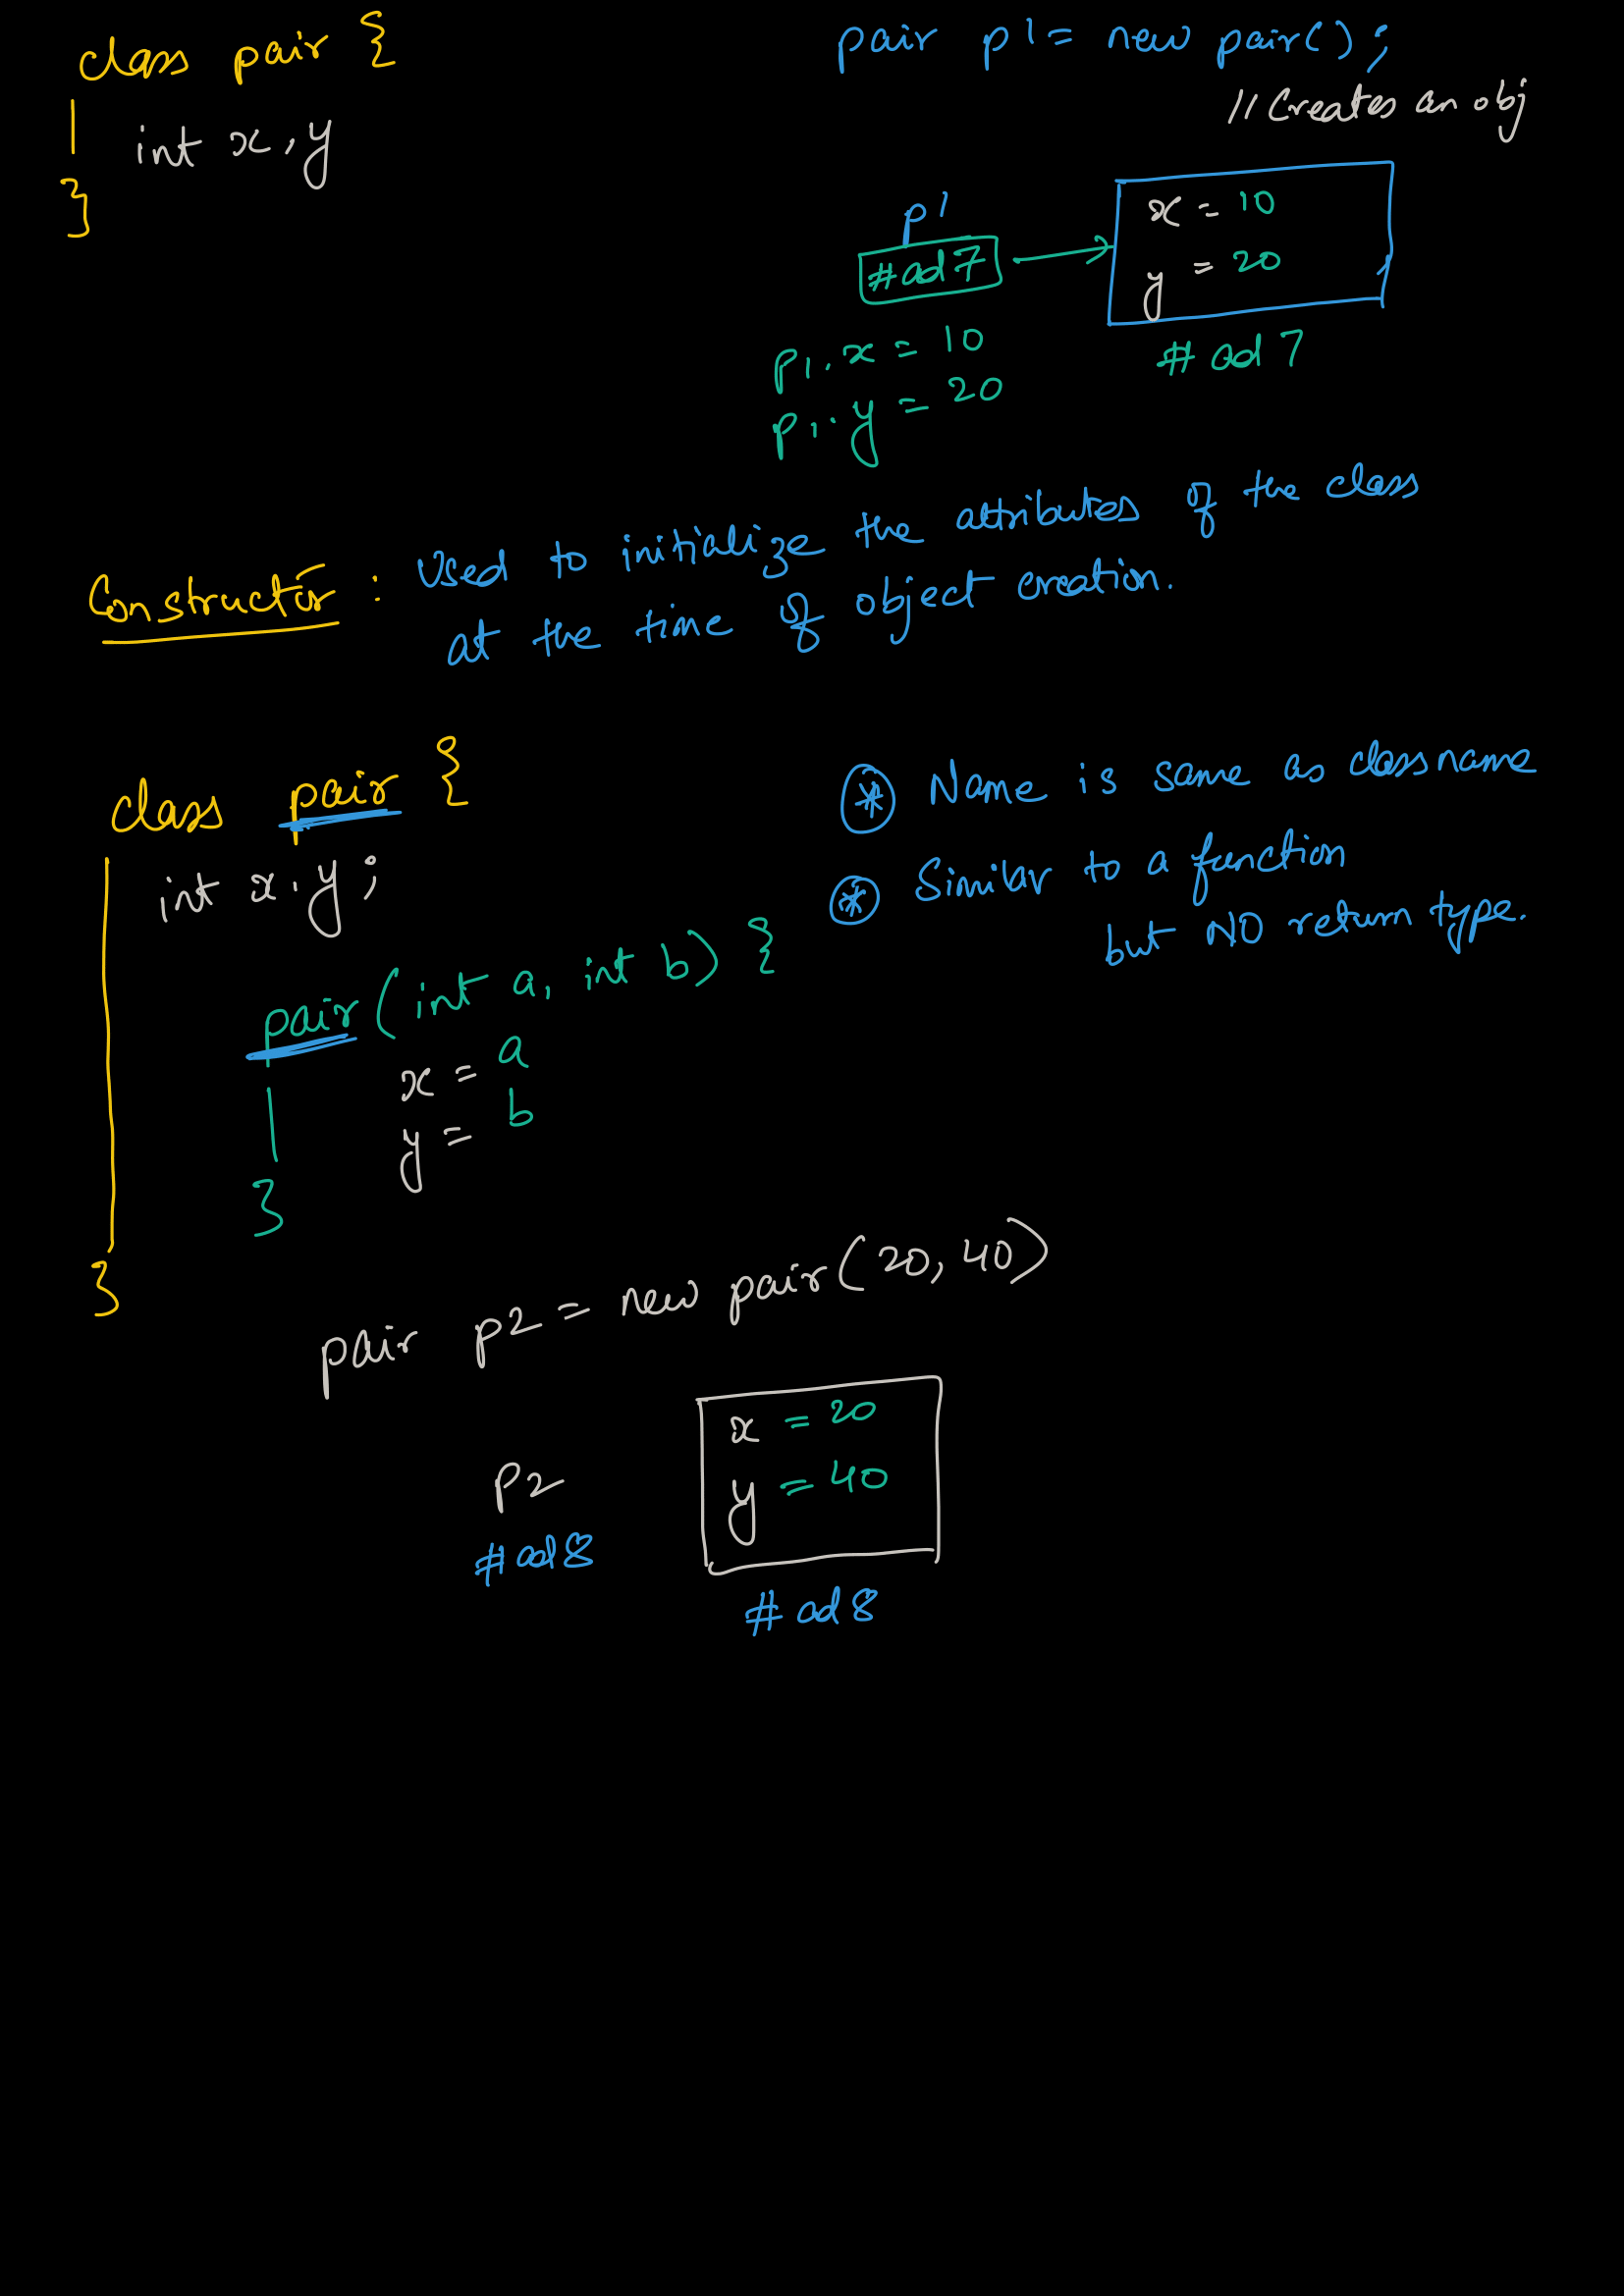 class pair {
int x, y
}
pair p1 = new pair();
// Creates an obj
p1
#ad7
x = 10
y = 20
#ad7
p1.x = 10
p1.y = 20
Constructor : Used to initialize the attributes of the class
at the time of object creation.
class pair {
int x, y;
pair(int a, int b) {
x = a
y = b
}
}
* Name is same as classname
* Similar to a function
but NO return type.
pair p2 = new pair(20, 40)
P2
#ad8
x = 20
y = 40
#ad8